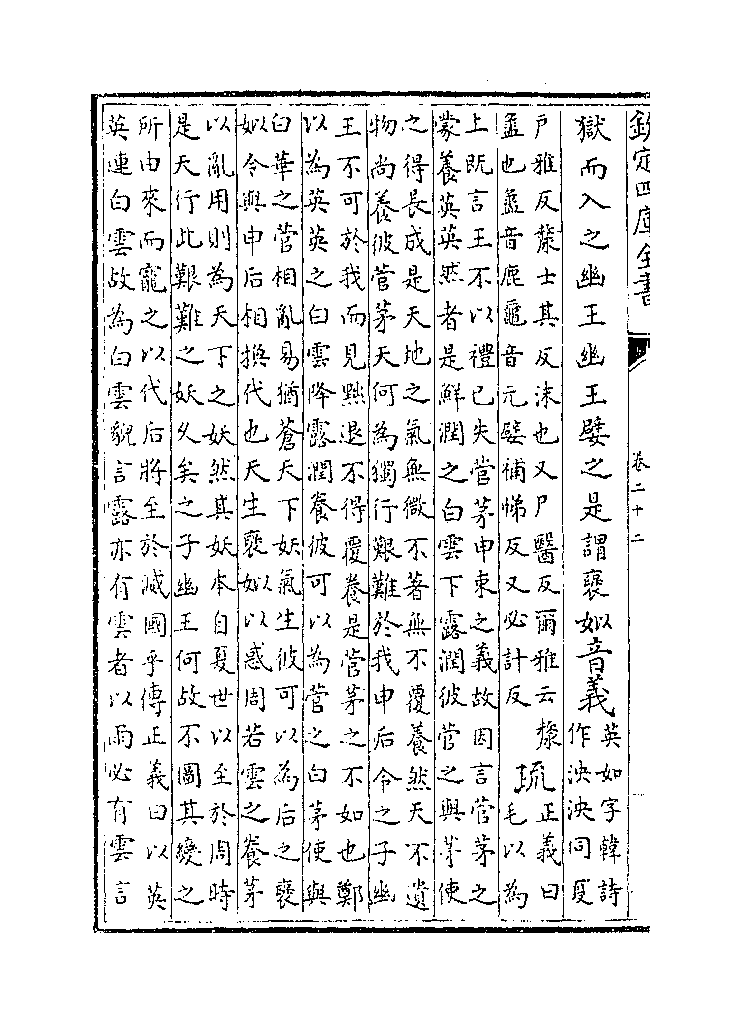 欽定四庫全書
卷二十二
獄而入之幽王幽王嬖之是謂褒姒音義英如字韓詩
作泱泱同夏
戸雅反漦士其反沫也又尸醫反爾雅云漦
盝也盝音鹿黿音元嬖補悌反又必計反
疏正義曰
毛以為
上既言王不以禮已失菅茅申束之義故因言菅茅之
蒙養英英然者是鮮潤之白雲下露潤彼菅之與茅使
之得長成是天地之氣無微不著無不覆養然天不遺
物尚養彼菅茅天何為獨行艱難於我申后令之子幽
王不可於我而見黜退不得覆養是菅茅之不如也鄭
以為英英之白雲降露潤養彼可以為菅之白茅使與
白華之菅相亂易猶蒼天下妖氣生彼可以為后之褒
姒令與申后相換代也天生褒姒以惑周若雲之養茅
以亂用則為天下之妖然其妖本自夏世以至於周時
是天行此艱難之妖久矣之子幽王何故不圖其變之
所由來而寵之以代后將至於滅國乎傳正義曰以英
英連白雲故為白雲貌言露亦有雲者以雨必有雲言